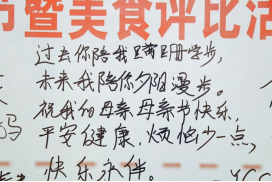 节暨美食评比活
过去你陪我蹒跚学步,
未来我陪你夕阳漫步。
祝我的母亲母亲节快乐,
平安健康,烦恼少一点,
快乐永伴。